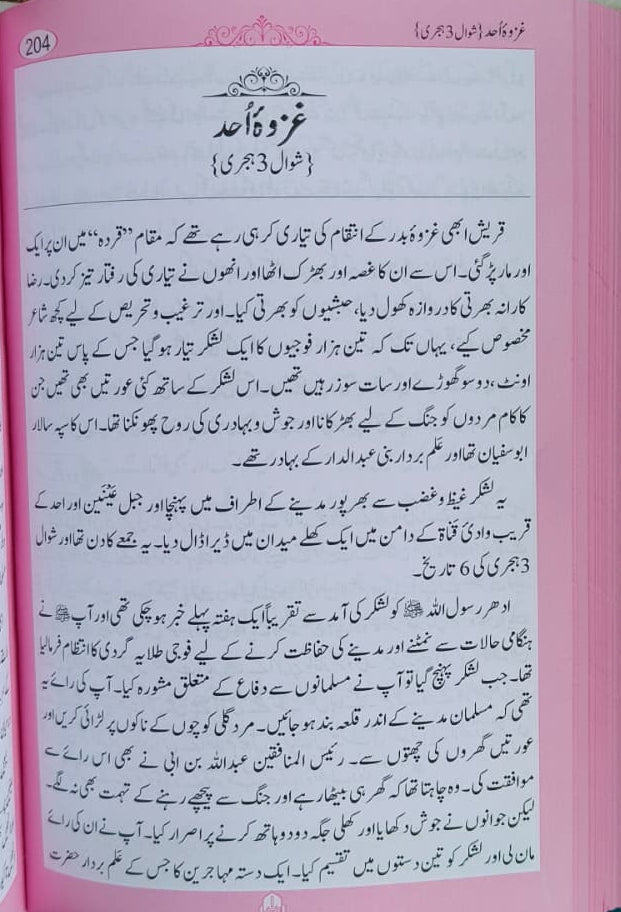 غزوۂ اُحد {شوال 3 ہجری}
204
غزوۂ اُحد
{شوال 3 ہجری}
قریش ابھی غزوۂ بدر کے انتقام کی تیاری کر ہی رہے تھے کہ مقام ”قردہ“ میں ان پر ایک
اور مار پڑ گئی۔ اس سے ان کا غصہ اور بھڑک اٹھا اور انھوں نے تیاری کی رفتار تیز کر دی۔ رضا
کارانہ بھرتی کا دروازہ کھول دیا، حبشیوں کو بھرتی کیا۔ اور ترغیب و تحریص کے لیے کچھ شاعر
مخصوص کیے، یہاں تک کہ تین ہزار فوجیوں کا ایک لشکر تیار ہو گیا جس کے پاس تین ہزار
اونٹ، دو سو گھوڑے اور سات سو زرہیں تھیں۔ اس لشکر کے ساتھ کئی عورتیں بھی تھیں جن
کا کام مردوں کو جنگ کے لیے بھڑکانا اور جوش و بہادری کی روح پھونکنا تھا۔ اس کا سپہ سالار
ابوسفیان تھا اور عَلم بردار بنی عبدالدار کے بہادر تھے۔
یہ لشکر غیظ و غضب سے بھرپور مدینے کے اطراف میں پہنچا اور جبل عَیْنَین اور احد کے
قریب وادیٔ قناۃ کے دامن میں ایک کھلے میدان میں ڈیرا ڈال دیا۔ یہ جمعے کا دن تھا اور شوال
3 ہجری کی 6 تاریخ۔
ادھر رسول اللہ ﷺ کو لشکر کی آمد سے تقریباً ایک ہفتہ پہلے خبر ہو چکی تھی اور آپ ﷺ نے
ہنگامی حالات سے نمٹنے اور مدینے کی حفاظت کرنے کے لیے فوجی طلایہ گردی کا انتظام فرمالیا
تھا۔ جب لشکر پہنچ گیا تو آپ نے مسلمانوں سے دفاع کے متعلق مشورہ کیا۔ آپ کی رائے یہ
تھی کہ مسلمان مدینے کے اندر قلعہ بند ہو جائیں۔ مرد گلی کوچوں کے ناکوں پر لڑائی کریں اور
عورتیں گھروں کی چھتوں سے۔ رئیس المنافقین عبداللہ بن ابی نے بھی اس رائے سے
موافقت کی۔ وہ چاہتا تھا کہ گھر ہی بیٹھا رہے اور جنگ سے پیچھے رہنے کے تہمت بھی نہ لگے۔
لیکن جوانوں نے جوش دکھایا اور کھلی جگہ دو دو ہاتھ کرنے پر اصرار کیا۔ آپ نے ان کی رائے
مان لی اور لشکر کو تین دستوں میں تقسیم کیا۔ ایک دستہ مہاجرین کا جس کے عَلم بردار حضرت